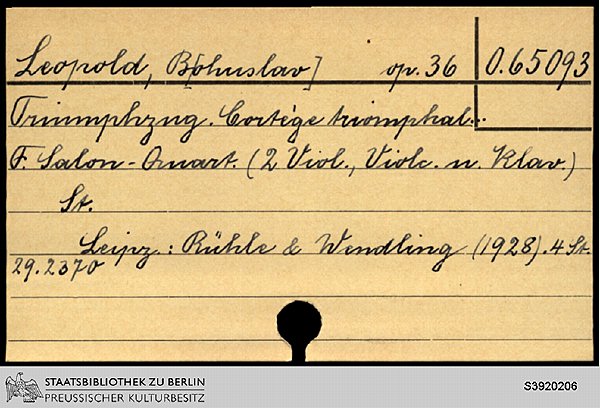 Leopold, B[ohuslav] op. 36 O.65093
Triumphzug. Cortège triomphal...
F. Salon-Quart. (2 Viol., Violc. u. Klav.)
St.
Leipz.: Rühle & Wendling (1928). 4 St.
29.2370
STAATSBIBLIOTHEK ZU BERLIN
PREUSSISCHER KULTURBESITZ
S3920206